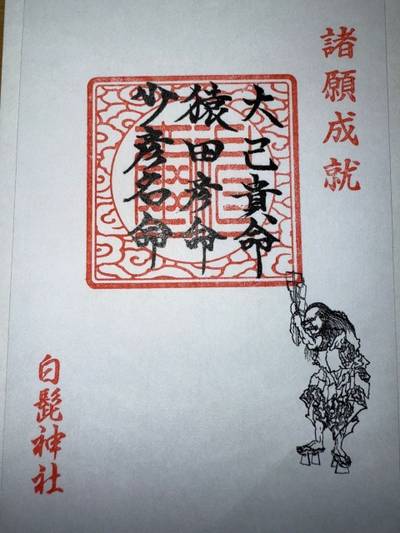 諸願成就
大己貴命
猿田彦命
少彦名命
白髭神社